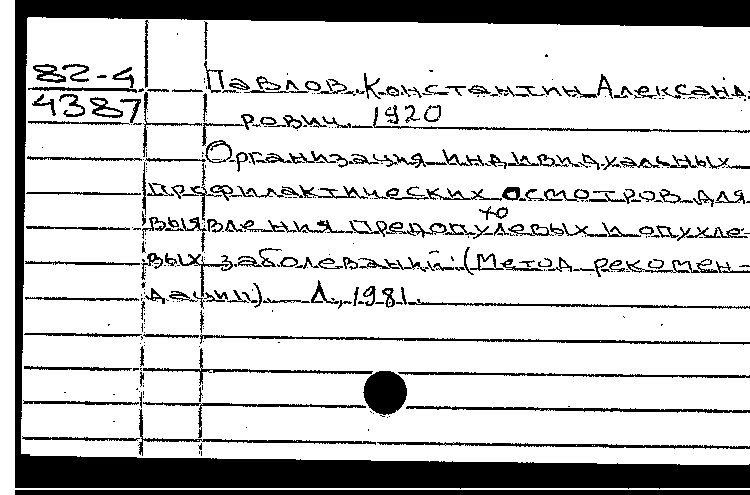 82-4
4387
Павлов, Константин Александ-
рович. 1920
Организация индивидуальных
профилактических осмотров для
выявления предопухолевых и опухле-
вых заболеваний: (Метод. рекомен-
дации). Л., 1981.